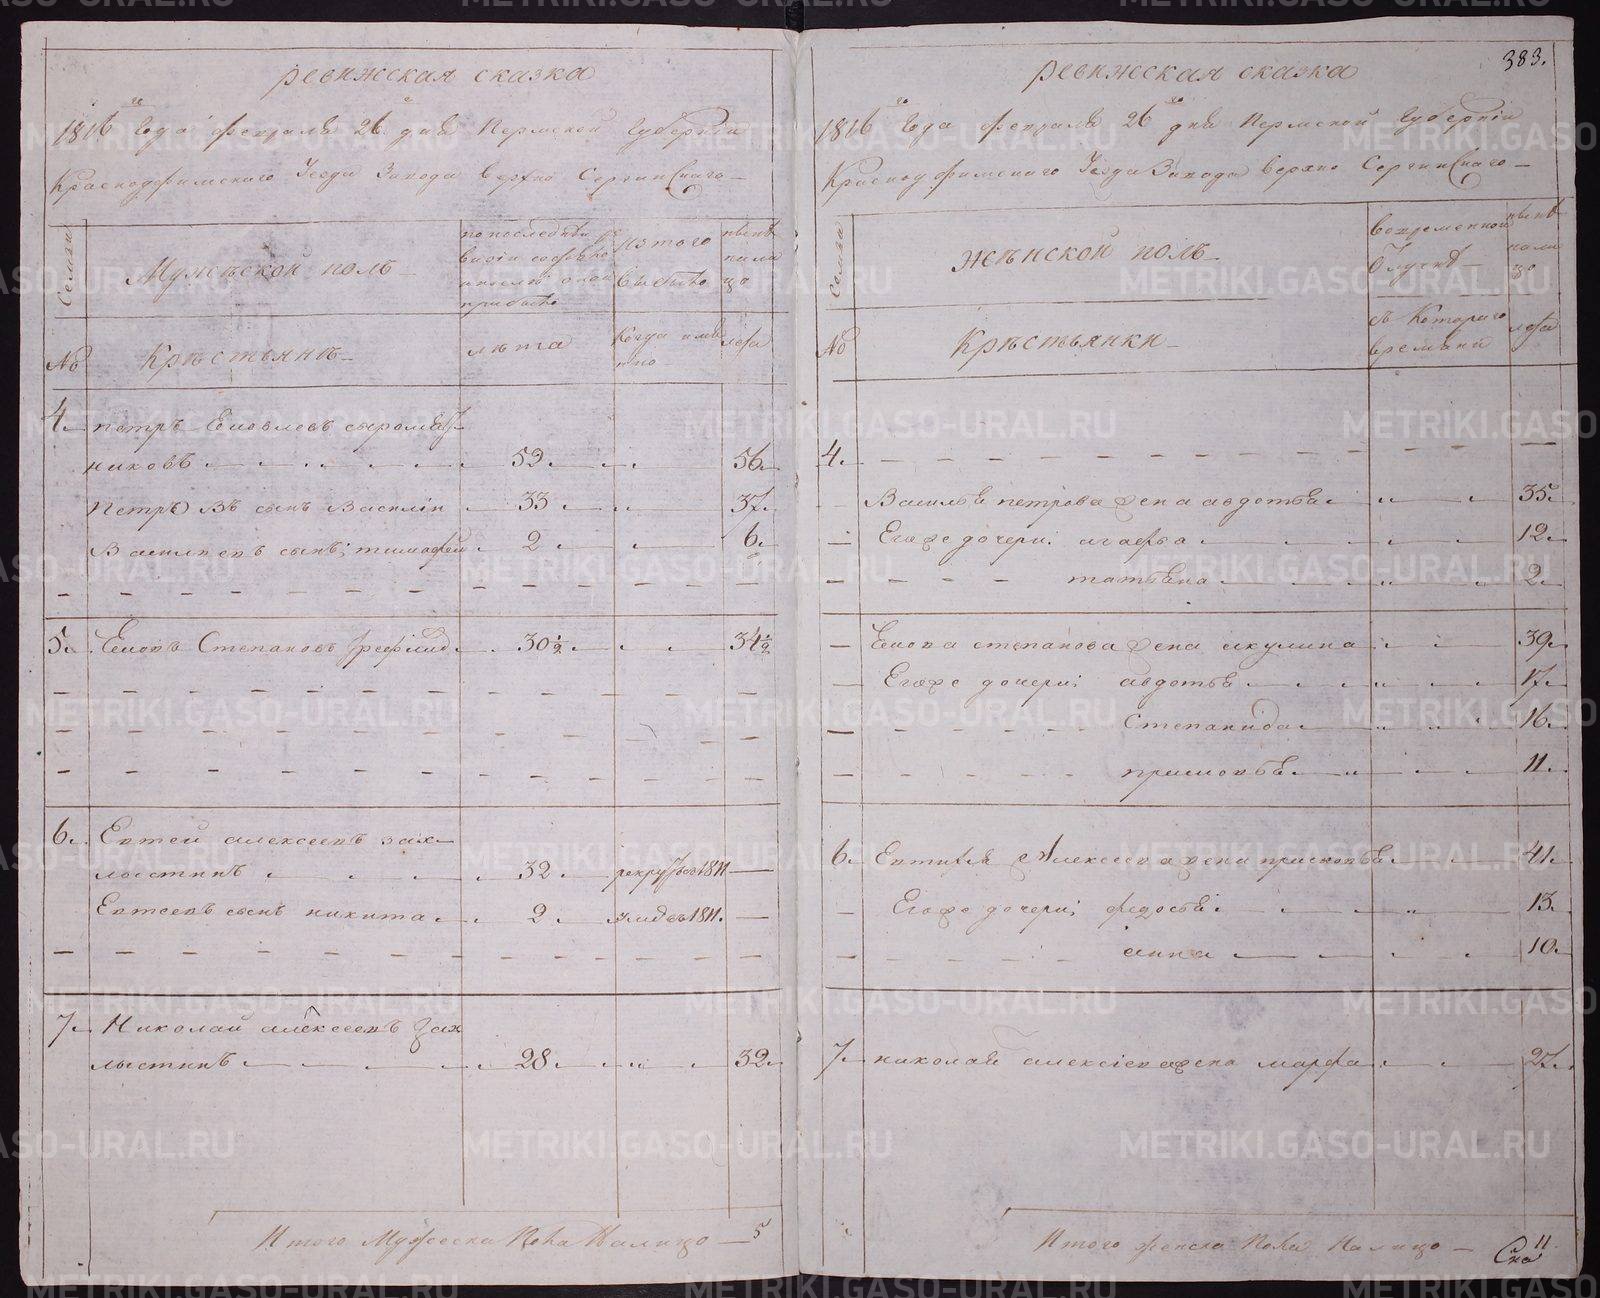 383.
ревижская сказка
1816го года февраля 26го дня Пермской Губернии
Красноуфимскаго Уезда Завода верхно Сергинскаго
Семьи
Мужеской полъ
по последней ре
визіи состояло
и после оной
прибыло
Изъ того
Выбыло
ныне
нали
цо
№
Крѣстьянѣ
лѣта
Когда имя
нно
лѣта
4. петръ Емовлевъ сыромят
никовъ 52 56
Петра Въ сынъ Василии 33 37
Васильевъ сынъ; тимофей 2 6
5. Емовъ Степановъ 30½ 34½
6. Евтей алексеевъ зах
лыстинъ 32 рекрутъ въ 1811
Евтеевъ сынъ никита 2 умре въ 1811.
7. Николай алексеевъ Зах
лыстинъ 28 32
Итого Мужеска Пола Налицо 5
ревижская сказка
1816го года февраля 26го дня Пермской Губернии
Красноуфимскаго Уезда Завода верхно Сергинскаго
Семьи
жѣнской полъ
вовременной
Отлучке
ныне
нали
цо
№
Крѣстьянки
съ Котораго
времяни
лѣта
4.
Василья петрова жена авдотья 35
Егоже дочери; агафья 12
татьяна 2
Емова степанова жена акулина 39
Егоже дочери; авдотья 17
Степанида 16
прасковья 11
6. Евтифея Алексеева жена прасковья 41
Егоже дочери; федосья 13
анна 10
7. николая алексіева жена марфа 27
Итого женска Пола Налицо 11